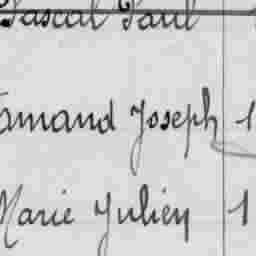 Pascal Paul
Armand Joseph 1
Marie Julien 1